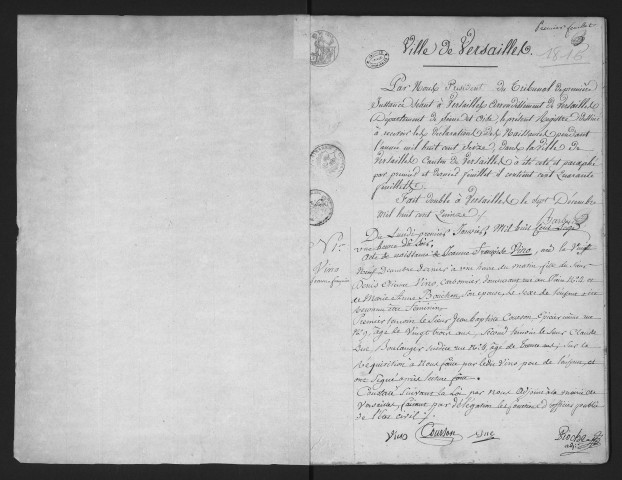 Premier feuillet
Ville de Versailles.
1816
Par Nous Président du Tribunal de première
Instance séant à Versailles arrondissement de Versailles
Département de Seine et Oise, le présent Registre destiné
à recevoir les déclarations des Naissances pendant
l'année mil huit cent seize, dans la Ville de
Versailles Canton de Versailles a été coté et paraphé
par premier et dernier feuillet il contient cent quarante
feuillets.
Fait double à Versailles le sept Décembre
mil huit cent quinze
Du Lundi premier Janvier Mil huit Cent Seize
une heure
N° 1er
Vino
Jeanne françoise
Acte de naissance de Jeanne Françoise Vino, née le Vingt
Neuf Décembre dernier à une heure du matin fille de Sieur
Denis Vino, demeurant rue du Plain N° 22 et
de Marie Anne Bouchon son épouse, le sexe de l'enfant a été
reconnu être féminin
Premier témoin le Sieur Jean Baptiste Courson Epicier
N° 9, âgé de Vingt trois ans, Second témoin le Sieur Claude
Duc Boulanger susdite rue N° âgé de trente ans; Sur la
réquisition à Nous faite par ledit Vino père de l'enfant, et
ont signé après lecture faite.
Constaté Suivant la Loi par nous adjoint à la mairie de
Versailles, faisant par délégation les fonctions d'officier public
de l'état civil
Vino Courson Duc
adj.